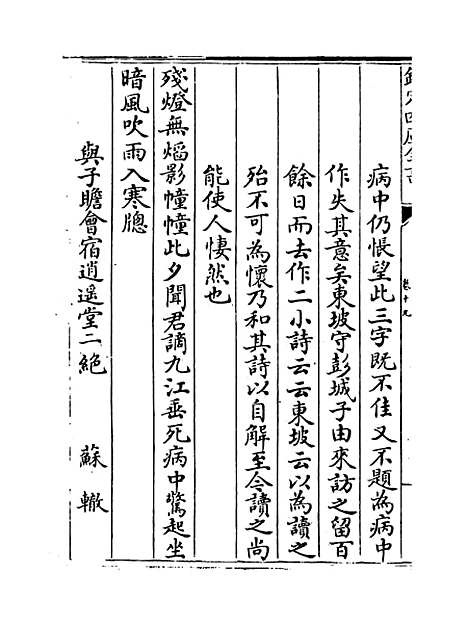 欽定四庫全書
卷十九
病中仍悵望此三字既不佳又不題為病中
作失其意矣東坡守彭城子由來訪之留百
餘日而去作二小詩云云東坡云以為讀之
殆不可為懷乃和其詩以自解至今讀之尚
能使人悽然也
殘燈無熖影幢幢此夕聞君謫九江垂死病中驚起坐
暗風吹雨入寒牕
與子瞻會宿逍遥堂二絶
蘇轍